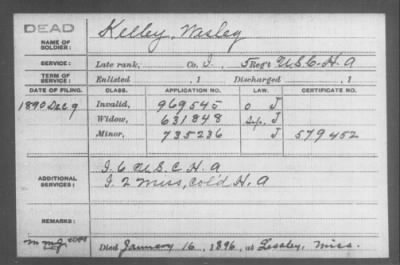 DEAD
NAME OF SOLDIER: Kelley, Wesley
SERVICE: Late rank, Co. I, 5 Reg't U.S.C.H.A
TERM OF SERVICE: Enlisted , 1 Discharged , 1
DATE OF FILING. CLASS. APPLICATION NO. LAW. CERTIFICATE NO.
1890 Dec 9 Invalid, 969545 O J
Widow, 631848 J
Minor, 735236 J 579452
ADDITIONAL SERVICES: I. 6 U.S.C.H.A
I. 2 Miss, Cold H.A
REMARKS:
Died January 16, 1896, at Lessley, Miss.